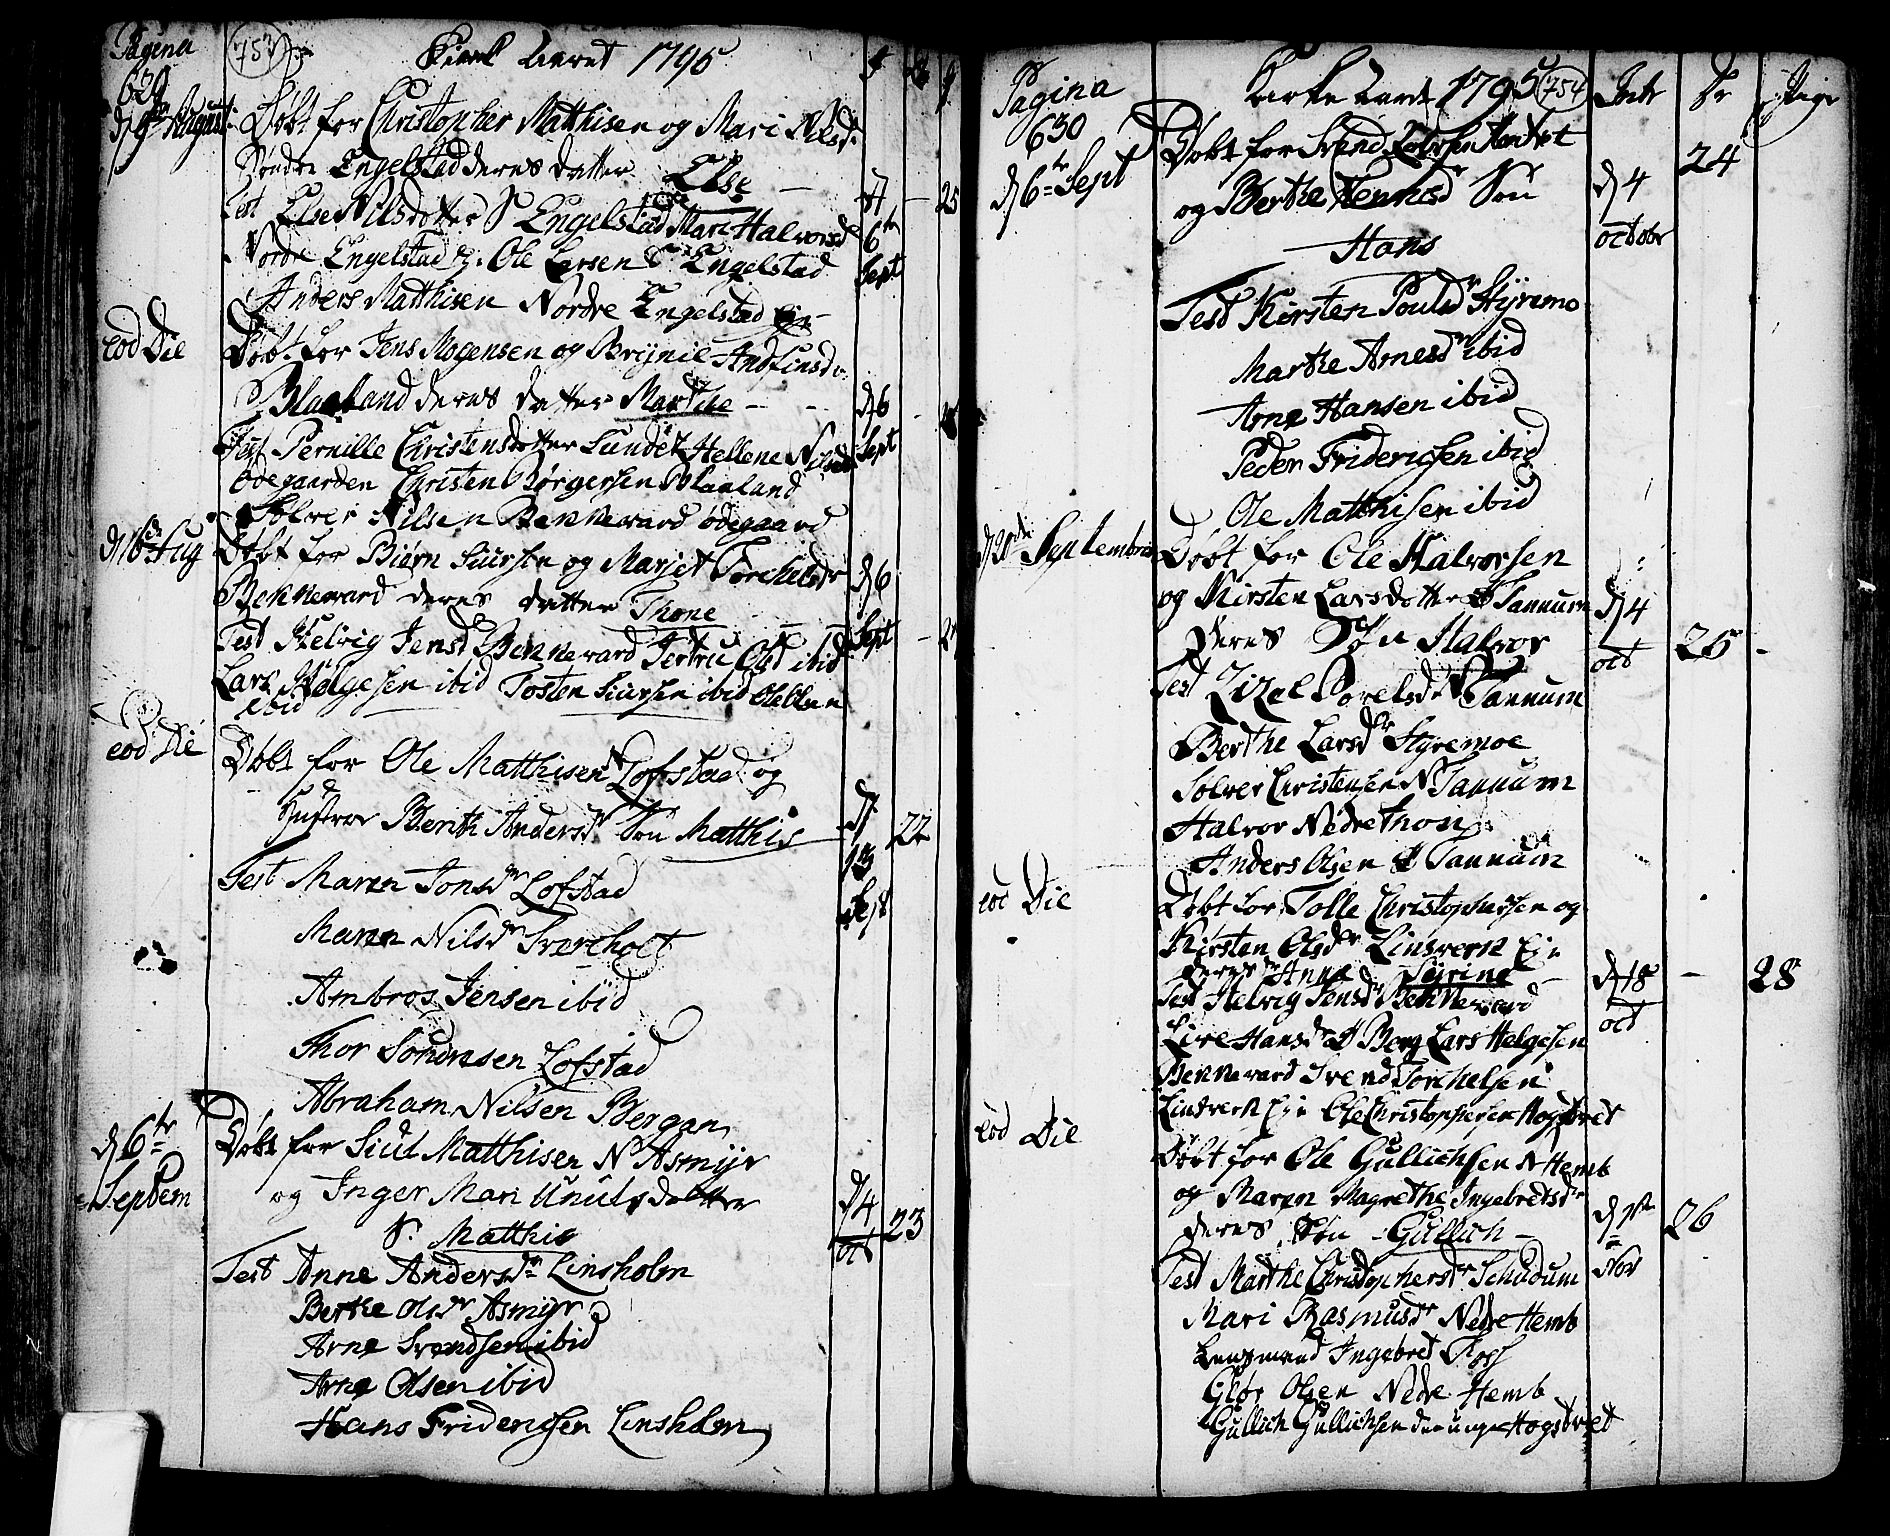 Pagina
629
753
Kirke Aaret 1795
d 9de August
Døbt for Christopher Matthisen og Mari Nilsdr
Søndre Engelstad deres datter Else
Test Else Nilsdotter S Engelstad Mari Halvorsd
Nordre Engelstad Ole Larsen S Engelstad
Anders Matthisen Nordre Engelstad Eje
d
6te
Sept
25
eod Die
Døbt for Jens Mogensen og Brynil Andfinsdr
Blaaland deres datter Marthe
Test Pernille Christensdotter Lundet Hellene Nilsd
ødegaarden Christen Børgersen Blaaland
Solver Nilsen Benneward ødegaard
d 6
Sept
d 16de Aug
Døbt for Biørn Siursen og Marjet Torchelsdr
Bekkeward deres datter Thone
Test Helvig Jensd Bekkeward Jertru Olsd ibid
Lars Helgesen ibid Tosten Siursen ibid Ole Olsen
ibid
d 6
Sept
eod Die
Døbt for Ole Matthisen Lofstad og
Hustroe Berthe Andersdr Søn Matthis
Test Maren Jonsdr Lofstad
Maren Nilsdr Svarcholt
Ambros Jensen ibid
Thor Sørensen Lofstad
Abraham Nilsen Bergan
d
13
Sept
22
d 6te
Septem
Døbt for Siul Matthisen N Asmyr
og Inger Mari Knutsdatter
S. Matthis
Test Anne Andersdr Linsholm
Berthe Olsdr Asmyr
Arne Svendsen ibid
Arne Olsen ibid
Hans Fridericsen Linsholm
d 4
oct
23
Pagina
630
Kirke Aaret 1795
754
Intr
Dr
Pige
d 6te Sept
Døbt for Svend
og Berthe Søn
Hans
Test Kirsten Poulsdr Styremo
Marthe Arnesdr ibid
Arne Hansen ibid
Peder Fridericsen ibid
Ole Matthisen ibid
d 4
octobr
24
d 20de Septembris
Døbt for Ole Halvorsen
og Kirsten Larsdotter Ø Tannum
deres Søn Halvor
Test Zizel Borelsdr Tannum
Berthe Larsdr Styremoe
Solver Christensen N Tannum
Halvor Nedre Thon
Anders Olsen Ø Tannum
d 4
oct
25
eod Die
Døbt for Tolle Christophersen og
Kirsten Olsdr Linsverk Eje
deres dr Anne Syrine
Test Helvig Jensdr Bekkeward
Live Hansdr Ø Berg Lars Helgesen
Bekkeward Svend Torchelsen
Linsverk Eje Ole Christophersen Hogstvet
d 18
oct
28
eod Die
Døbt for Ole Gullichsen N Hemb
og Maren Magrethe Ingebretsdr
deres Søn Gullich
Test Marthe Christophersdr Schudum
Mari Rasmusdr Nedre Hemb
Lensmand Ingebret Foss
Gløe Olsen Nedre Hemb
Gullich Gullichsen den unge Hogstvet
d 1te
Nov
26